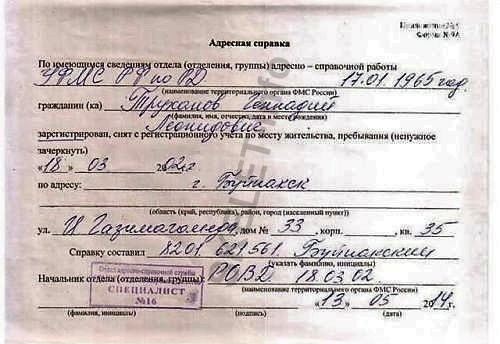 Приложение №
Форма № 9А
Адресная справка
По имеющимся сведениям отдела (отделения, группы) адресно – справочной работы
УФМС РФ по РД 17.01.1965 год.
(наименование территориального органа ФМС России)
гражданин (ка) Труханов Геннадий
(фамилия, имя, отчество, дата и место рождения)
Леонидович
зарегистрирован, снят с регистрационного учёта по месту жительства, пребывания (ненужное
зачеркнуть)
«18» 03 2002г
по адресу: г. Буйнакск
(область (край, республика), район, город (населенный пункт))
ул. И Газимагомеда, дом № 33, корп. , кв. 35
Справку составил 8201 621561 Буйнакским
(указать фамилию, инициалы)
Начальник отдела (отделения, группы) РОВД 18.03 02
(наименование территориального органа ФМС России)
Отдел адресно-справочной службы
СПЕЦИАЛИСТ
№16
«13» 05 2014г.
(фамилия, инициалы) (подпись) (дата)